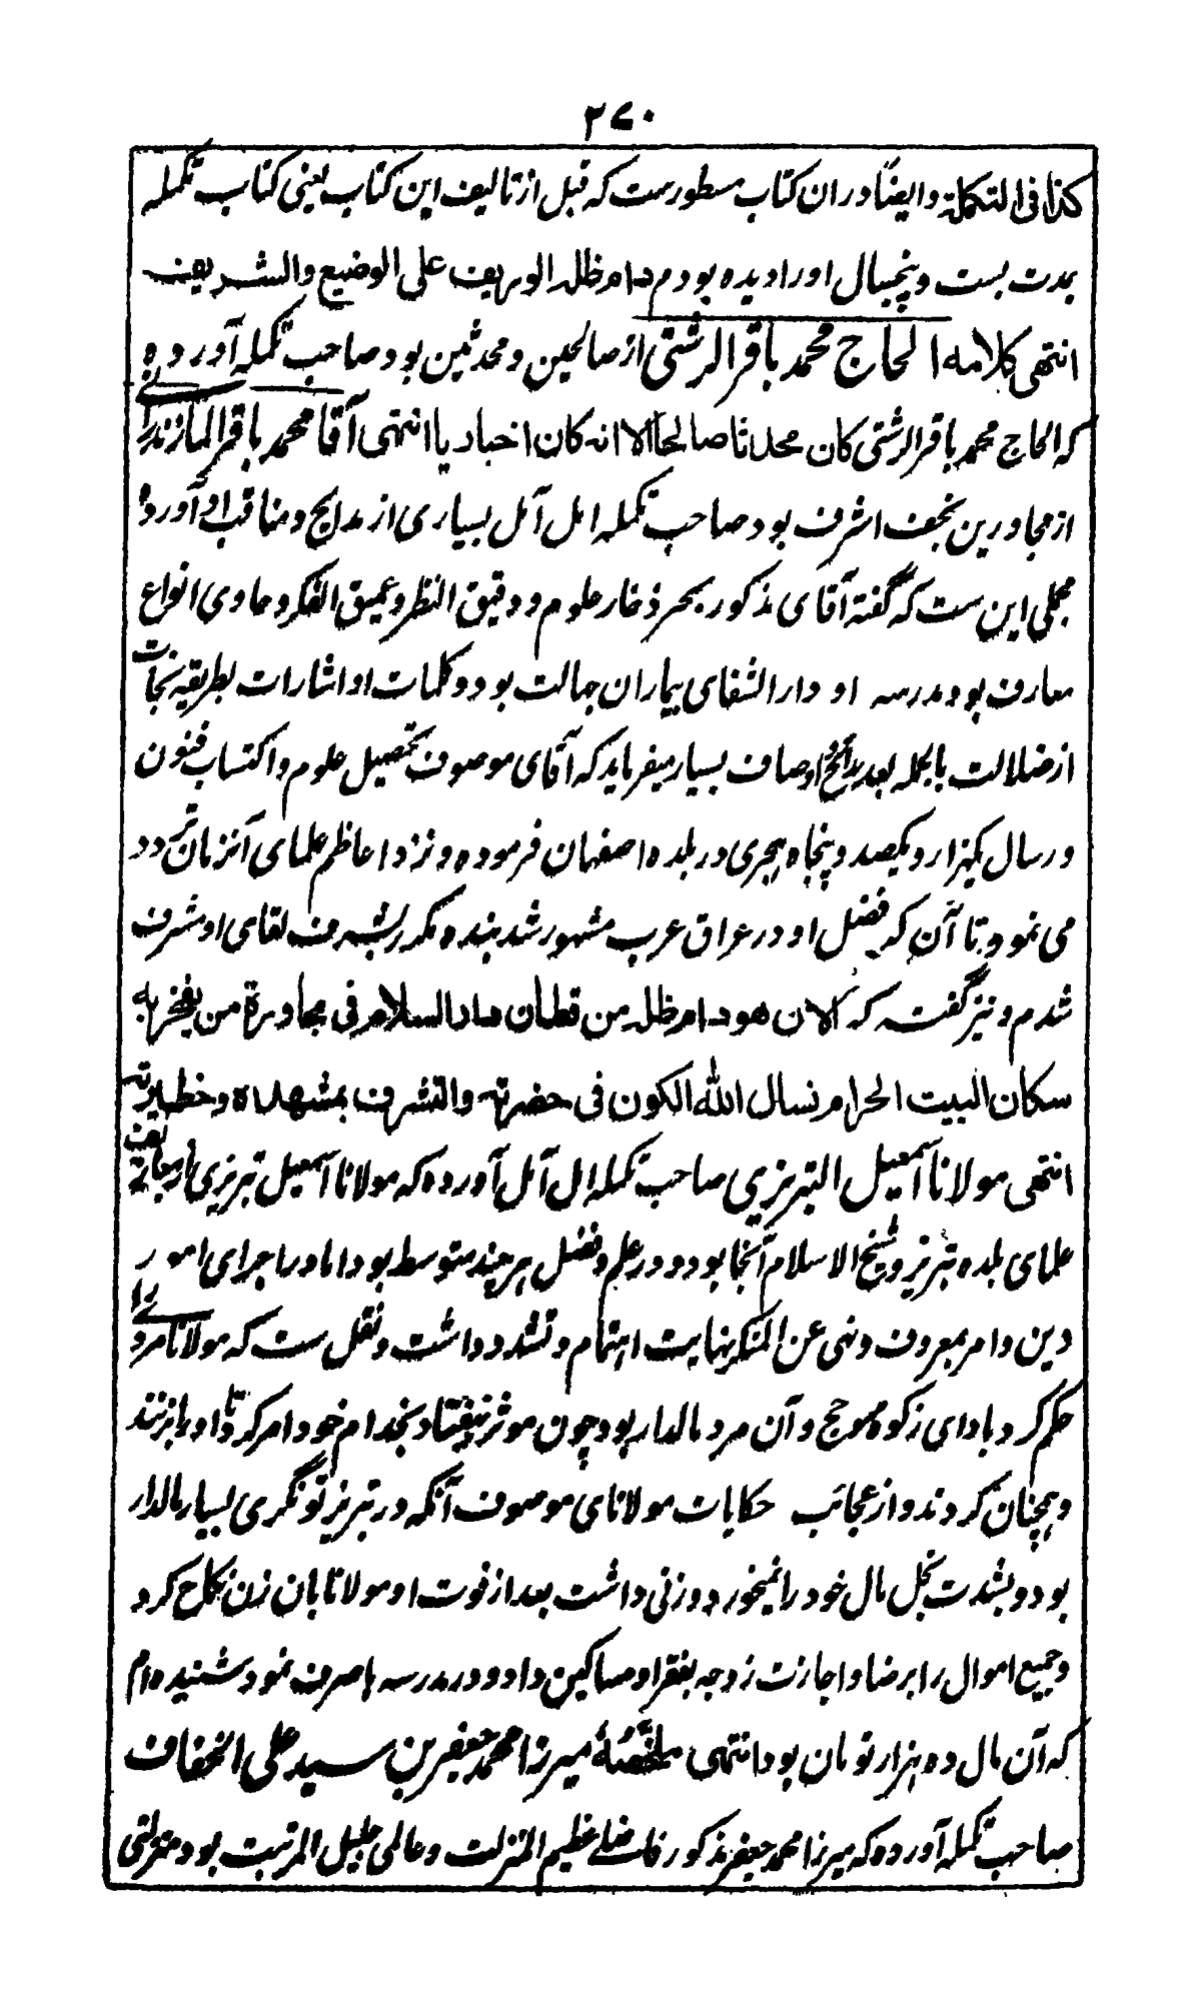 ۲۷۰
کذا فی التکملة و ایضًا در ان کتاب مسطورست که قبل از تالیف این کتاب یعنی کتاب تکمله
بمدت بست و پنجسال اورا دیده بودم دام ظله الوریف علی الوضیع والشریف
انتهی کلامه الحاج محمد باقر الرشتی از صالحین و محدثین بود صاحب تکمله آورده
که الحاج محمد باقر الرشتی کان محدثا صالحا الا انه کان اخباریا انتهی آقا محمد باقر المازندرانی
از مجاورین نجف اشرف بود صاحب تکمله امل آمل بسیاری از مدایح و مناقب او آورده
مجملی این ست که گفته آقای مذکور بحر ذخار علوم و دقیق النظر و عمیق الفکر و حاوی انواع
معارف بود مدرسه او دار الشفای بیماران جهالت بود و کلمات او اشارات بطریقه نجات
از ضلالت بالجمله بعد مدایح اوصاف بسیار میفرماید که آقای موصوف تحصیل علوم و اکتساب فنون
در سال یکهزار و یکصد و پنجاه هجری در بلده اصفهان فرموده و نزد اعاظم علمای آنزمان تردد
می نمود تا آن که فضل او در عراق عرب مشهور شد بنده مکرر بشرف لقای او مشرف
شدم و نیز گفته که الان هو دام ظله من قطان دار السلام فی مجاورة من یفخر به
سکان البیت الحرام نسال الله الکون فی حضرته والتشرف بمشهده و خطیرته
انتهی مولانا آسمعیل التبریزی صاحب تکمله امل آمل آورده که مولانا آسمعیل تبریزی از معارف
علمای بلده تبریز و شیخ الاسلام آنجا بود و در علم و فضل هر چند متوسط بود اما در اجرای امور
دین و امر بمعروف و نهی عن المنکر نهایت اهتمام و تشدد داشت و نقل ست که مولانا مردی را
حکم کرد بادای زکوة و حج و آن مرد مالدار بود چون موثر نیفتاد بخدام خود امر کرد تا او را بزنند
و همچنان کردند و از عجائب حکایات مولانای موصوف آنکه در تبریز تونگری بسیار مالدار
بود و بشدت بخل مال خود را نمیخورد و زنی داشت بعد از فوت او مولانا بان زن نکاح کرد
و جمیع اموال را برضا و اجازت زوجه بفقرا و مساکین داد و در مدرسه ها صرف نمود شنیده ام
که آن مال ده هزار تومان بود انتهی ملخصًا میرزا محمد جعفر بن سید علی الخفاف
صاحب تکمله آورده که میرزا محمد جعفر مذکور فاضلے عظیم المنزلت و عالمی جلیل المرتبت بود متولی